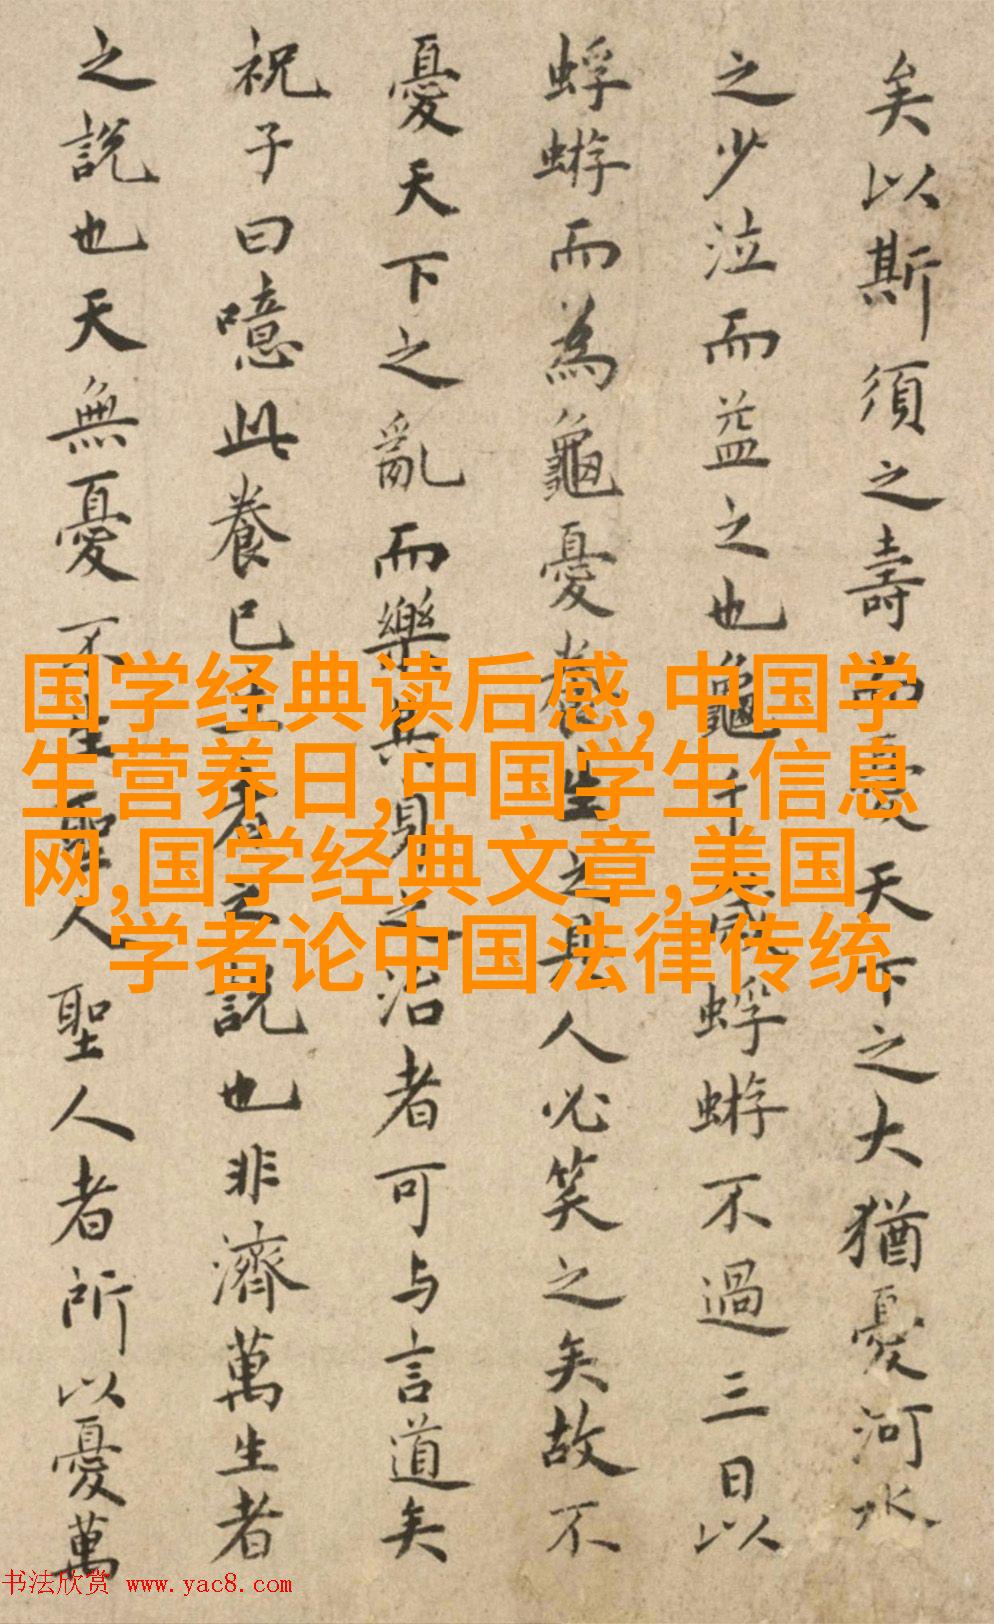 矣以斯須之壽而憂天下之大猶憂河水
之少泣而益之也龜千歲蜉蝣不過三日以
蜉蝣而為龜憂養生之具人必笑之矣故不
憂天下之亂而樂其身之治者可与言道矣
祝子曰噫此養已生者之說也非濟萬生者
之說也天無憂不生聖人聖人者所以憂萬
国学经典读后感,中国学
生营养日,中国学生信息
网,国学经典文章,美国
学者论中国法律传统
书法欣赏 www.yac8.com